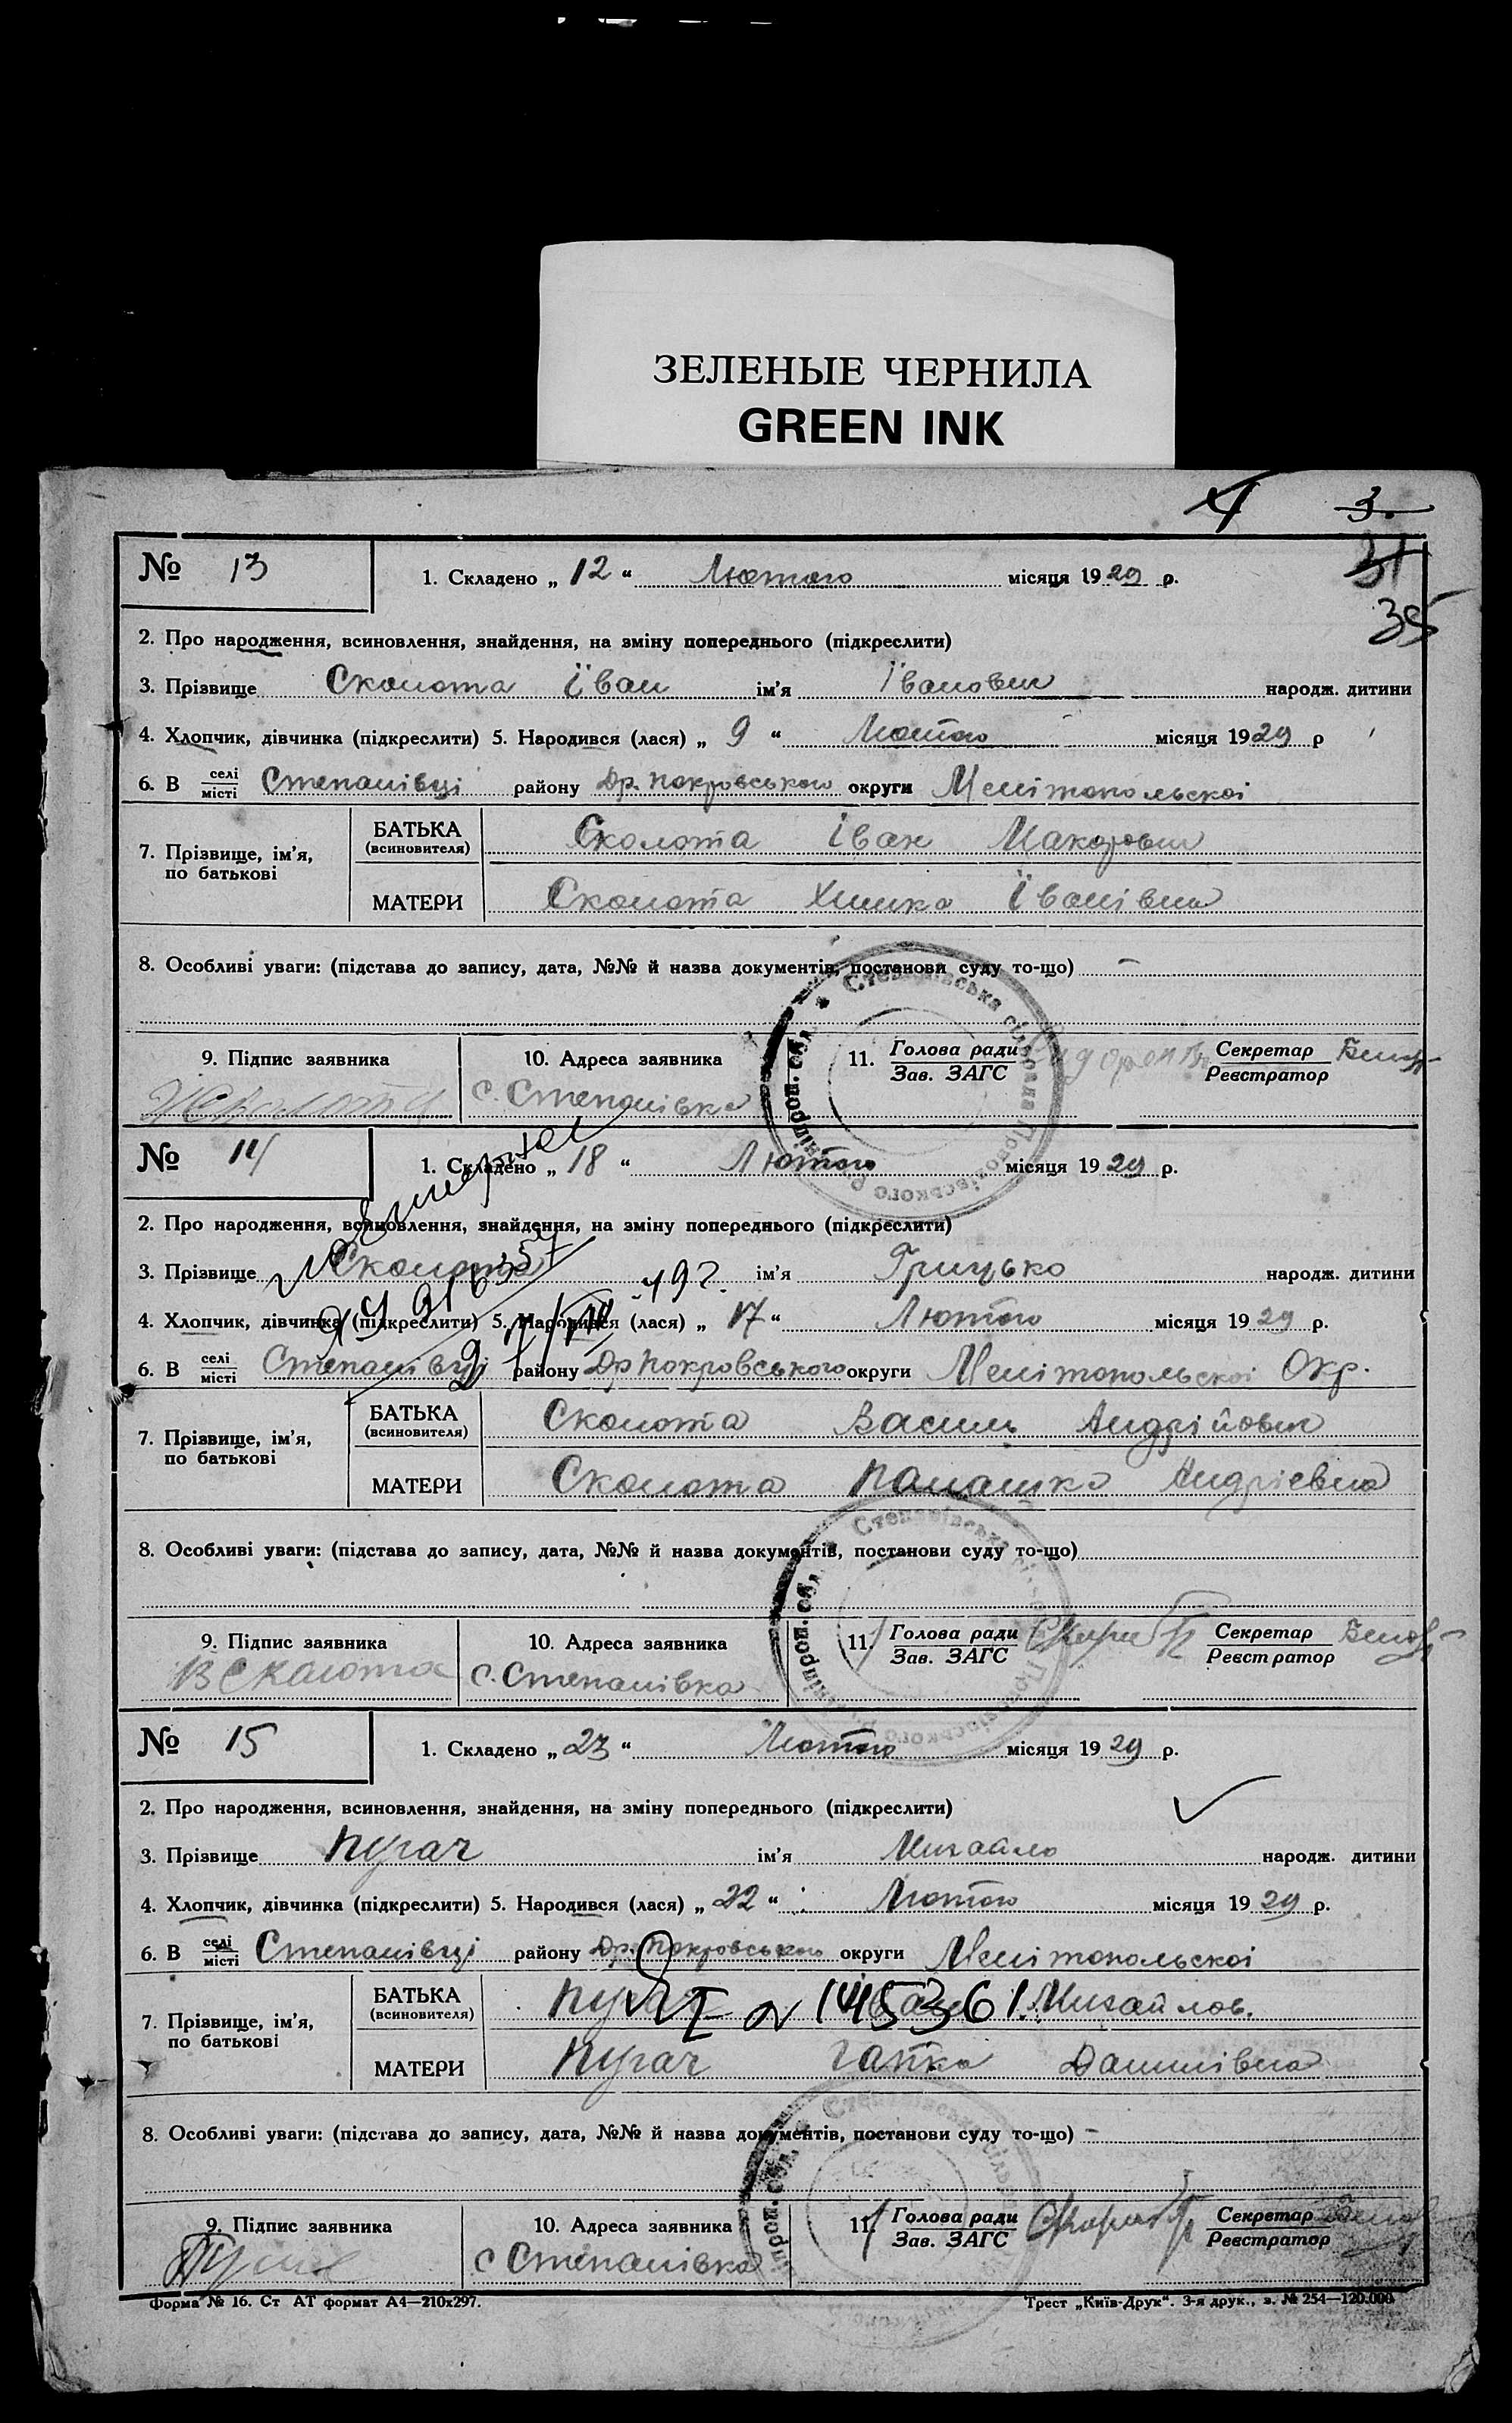 ЗЕЛЕНЫЕ ЧЕРНИЛА
GREEN INK
4 3.
31
35
№ 13 1. Складено „ 12 “ Лютого місяця 1929 р.
2. Про народження, всиновлення, знайдення, на зміну попереднього (підкреслити)
3. Прізвище Сколота Їван ім'я Їванович народж. дитини
4. Хлопчик, дівчинка (підкреслити) 5. Народився (лася) „ 9 “ Лютого місяця 1929 р
6. В селі/місті Степанівці району Др. Покровського округи Мелітопольскоі
7. Прізвище, ім'я, по батькові БАТЬКА (всиновителя) Сколота Іван Макарович
МАТЕРИ Сколота Химка Їванівна
8. Особливі уваги: (підстава до запису, дата, №№ й назва документів, постанови суду то-що) –
9. Підпис заявника 10. Адреса заявника 11. Голова ради/Зав. ЗАГС Секретар/Реєстратор
с. Степанівка
№ 14 1. Складено „ 18 “ Лютого місяця 1929 р.
2. Про народження, всиновлення, знайдення, на зміну попереднього (підкреслити)
3. Прізвище Сколота ім'я Грицько народж. дитини
4. Хлопчик, дівчинка (підкреслити) 5. Народився (лася) „ 17 “ Лютого місяця 1929 р.
6. В селі/місті Степанівці району Др Покровського округи Мелітопольскоі Окр.
7. Прізвище, ім'я, по батькові БАТЬКА (всиновителя) Сколота Василь Андрійович
МАТЕРИ Сколота Палашка Андріевна
8. Особливі уваги: (підстава до запису, дата, №№ й назва документів, постанови суду то-що)
9. Підпис заявника 10. Адреса заявника 11. Голова ради/Зав. ЗАГС Секретар/Реєстратор
В Сколота с. Степанівка
№ 15 1. Складено „ 23 “ Лютого місяця 1929 р.
2. Про народження, всиновлення, знайдення, на зміну попереднього (підкреслити)
3. Прізвище Пугач ім'я Михайло народж. дитини
4. Хлопчик, дівчинка (підкреслити) 5. Народився (лася) „ 22 “ Лютого місяця 1929 р.
6. В селі/місті Степанівці району Др. Покровського округи Мелітопольскоі
7. Прізвище, ім'я, по батькові БАТЬКА (всиновителя) Пугач Михайлов.
МАТЕРИ Пугач Гапка Данилівна
8. Особливі уваги: (підстава до запису, дата, №№ й назва документів, постанови суду то-що) –
9. Підпис заявника 10. Адреса заявника 11. Голова ради/Зав. ЗАГС Секретар/Реєстратор
с Степанівка
Форма № 16. Ст АТ формат А4—210х297. Трест „Київ-Друк“. 3-я друк., з. № 254—120.000.